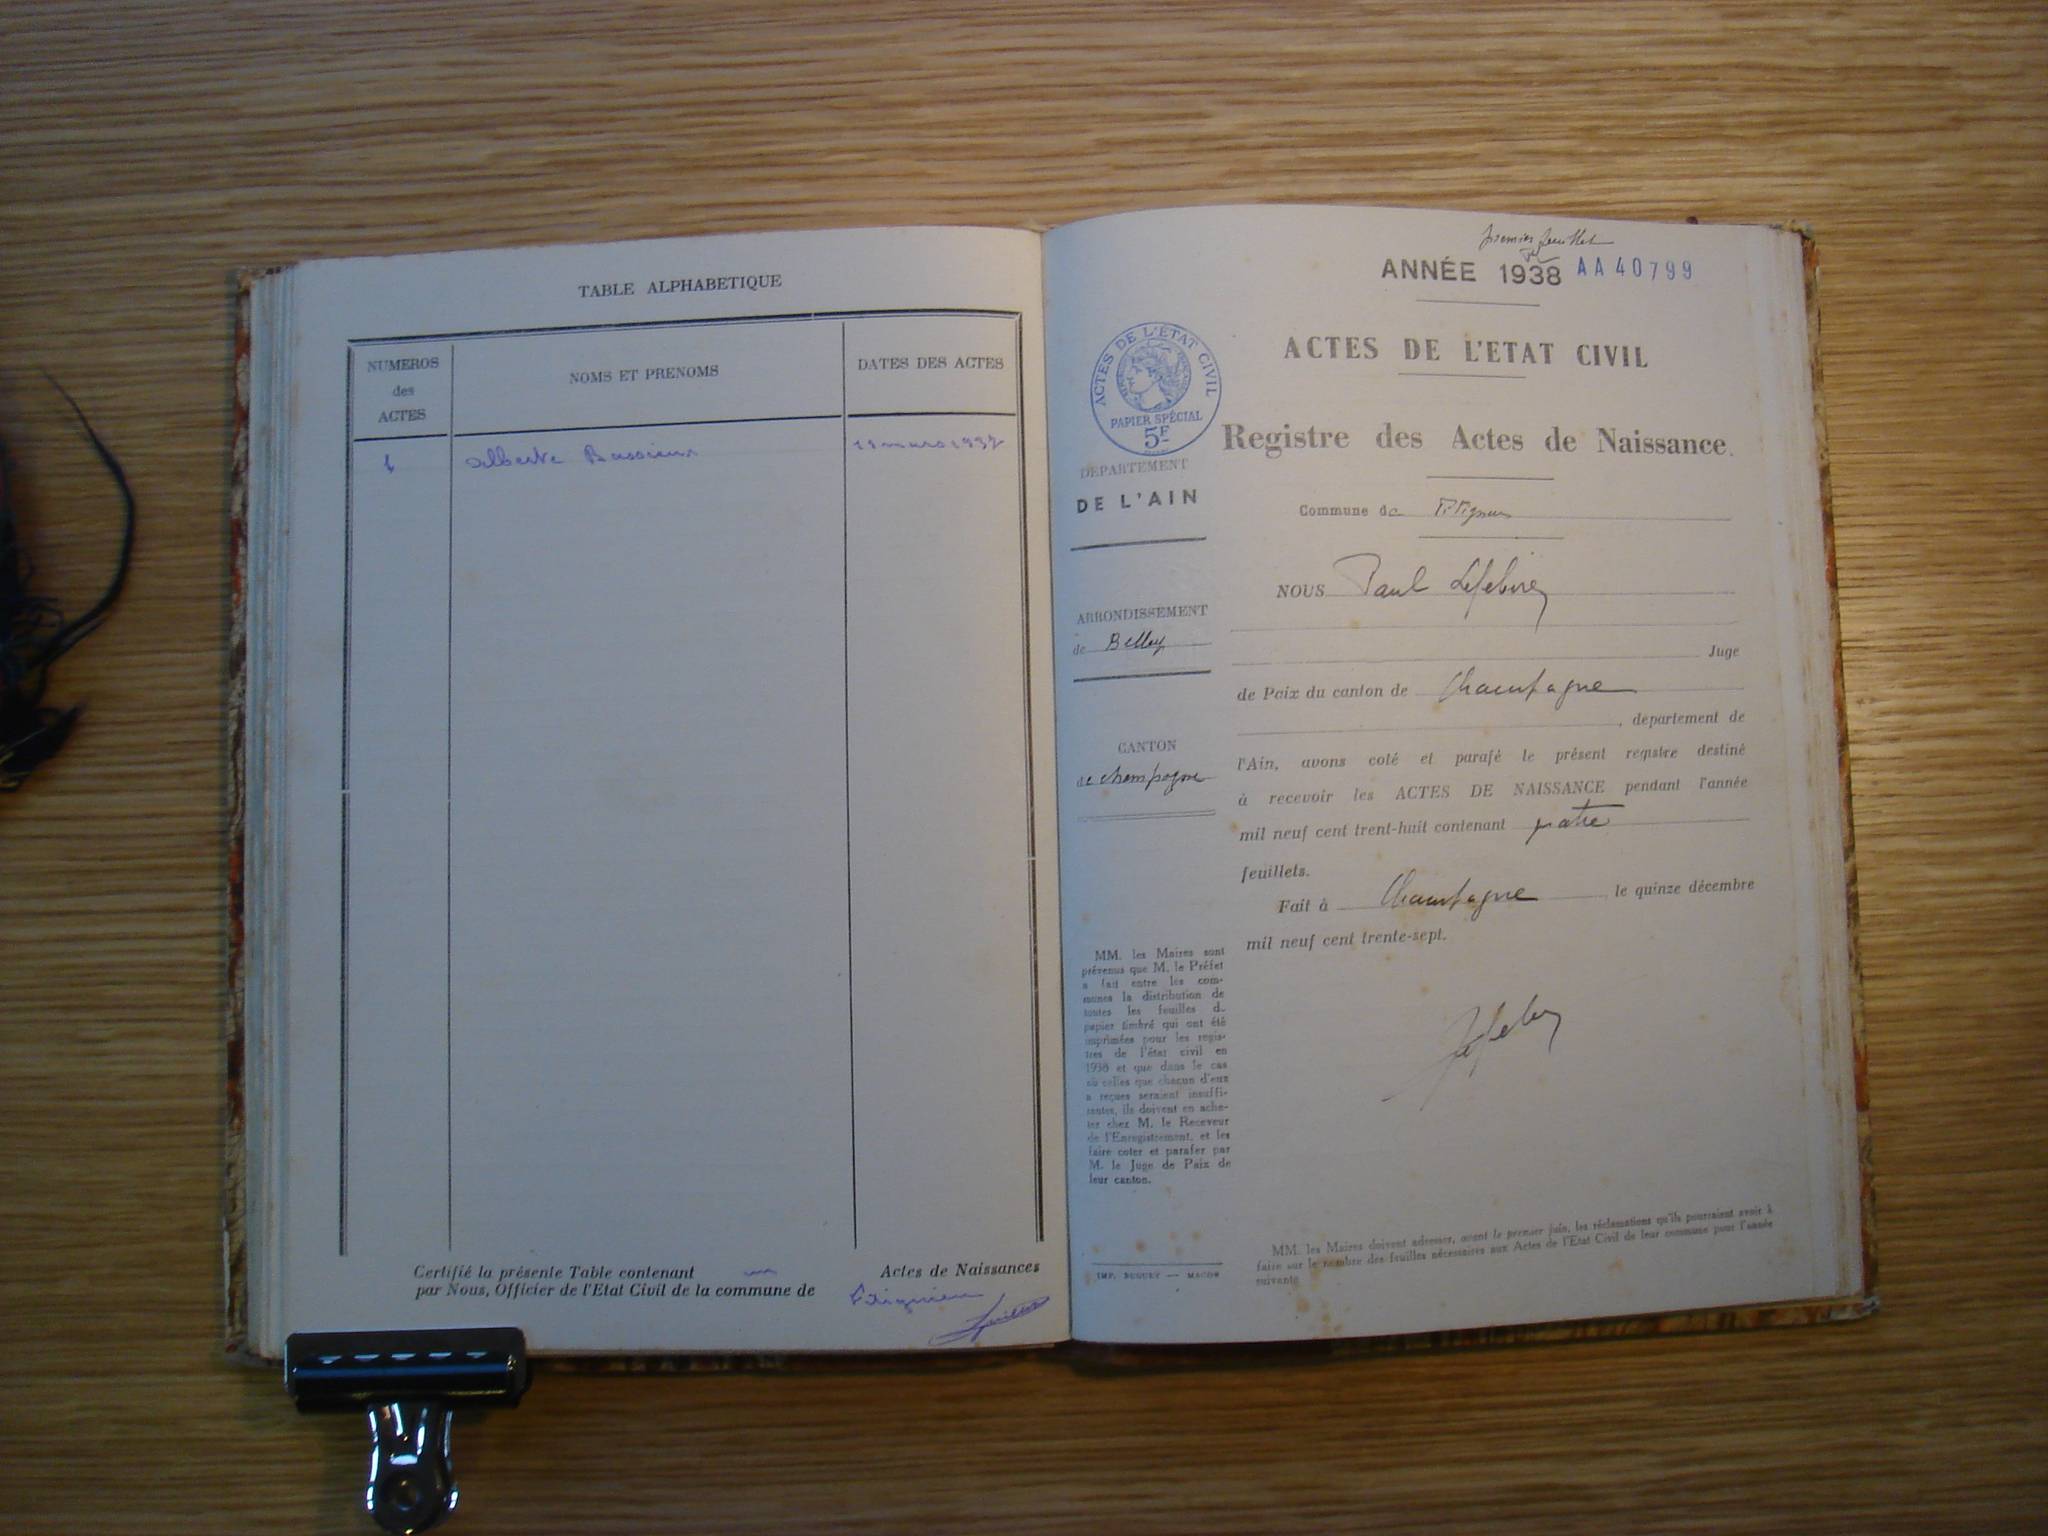 TABLE ALPHABETIQUE
NUMEROS
des
ACTES
NOMS ET PRENOMS
DATES DES ACTES
1
Alberte
mars 1937
Certifié la présente Table contenant un Actes de Naissances
par Nous, Officier de l'Etat Civil de la commune de
premier feuillet
ANNÉE 1938 AA 40799
ACTES DE L'ÉTAT CIVIL
PAPIER SPÉCIAL
5F
ACTES DE L'ETAT CIVIL
Registre des Actes de Naissance.
DEPARTEMENT
DE L'AIN
ARRONDISSEMENT
de Belley
CANTON
de Champagne
MM. les Maires sont
prévenus que M. le Préfet
a fait entre les com-
munes la distribution de
toutes les feuilles d.
papier timbré qui ont été
imprimées pour les regis-
tres de l'état civil en
1938 et que dans le cas
où celles que chacun d'eux
a reçues seraient insuffi-
santes, ils doivent en ache-
ter chez M. le Receveur
de l'Enregistrement, et les
faire coter et parafer par
M. le Juge de Paix de
leur canton.
IMP. BUGUET — MACON
Commune de
NOUS Paul Lefebvre
Juge
de Paix du canton de Champagne
, departement de
l'Ain, avons coté et parafé le présent registre destiné
à recevoir les ACTES DE NAISSANCE pendant l'année
mil neuf cent trent-huit contenant quatre
feuillets.
Fait à Champagne le quinze décembre
mil neuf cent trente-sept.
MM. les Maires doivent adresser, avant le premier juin, les réclamations qu'ils pourraient avoir à
faire sur le nombre des feuilles nécessaires aux Actes de l'Etat Civil de leur commune pour l'année
suivante